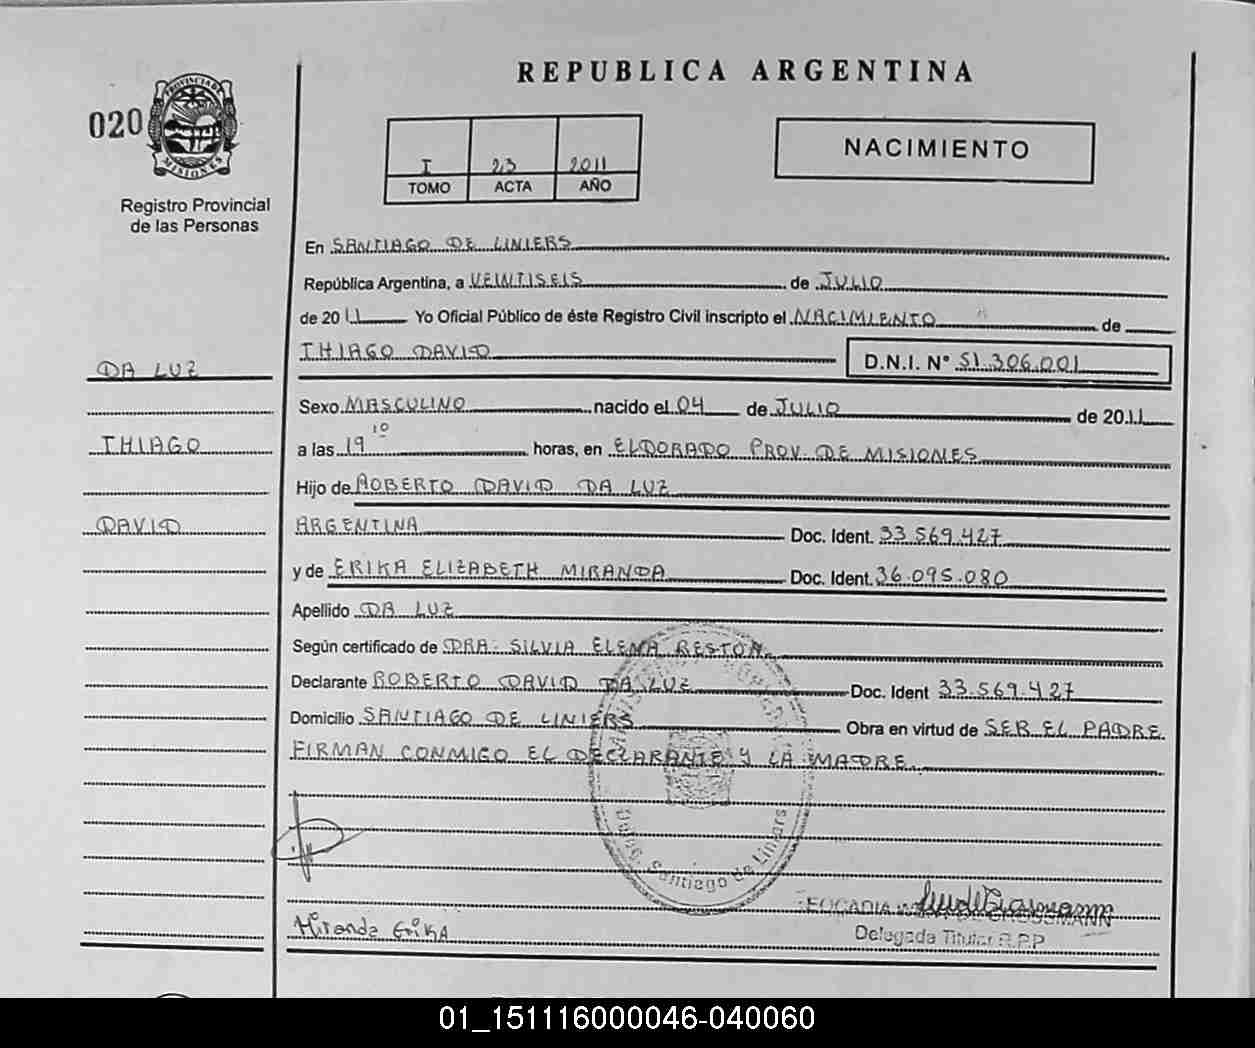 REPUBLICA ARGENTINA
020
PROVINCIA DE
MISIONES
Registro Provincial
de las Personas
I 23 2011
TOMO ACTA AÑO
NACIMIENTO
En SANTIAGO DE LINIERS
República Argentina, a VEINTISEIS de JULIO
de 2011 Yo Oficial Público de éste Registro Civil inscripto el NACIMIENTO de
THIAGO DAVID D.N.I. N° 51.306.001
DA LUZ
THIAGO
DAVID
Sexo MASCULINO nacido el 04 de JULIO de 2011
a las 19 10 horas, en ELDORADO PROV. DE MISIONES
Hijo de ROBERTO DAVID DA LUZ
ARGENTINA Doc. Ident. 33.569.427
y de ERIKA ELIZABETH MIRANDA Doc. Ident. 36.095.080
Apellido DA LUZ
Según certificado de DRA. SILVIA ELENA RESTON.
Declarante ROBERTO DAVID DA LUZ Doc. Ident 33.569.427
Domicilio SANTIAGO DE LINIERS Obra en virtud de SER EL PADRE
FIRMAN CONMIGO EL DECLARANTE Y LA MADRE.
Santiago de Liniers
Miranda Erika
Delegada Titular R.P.P
01_151116000046-040060